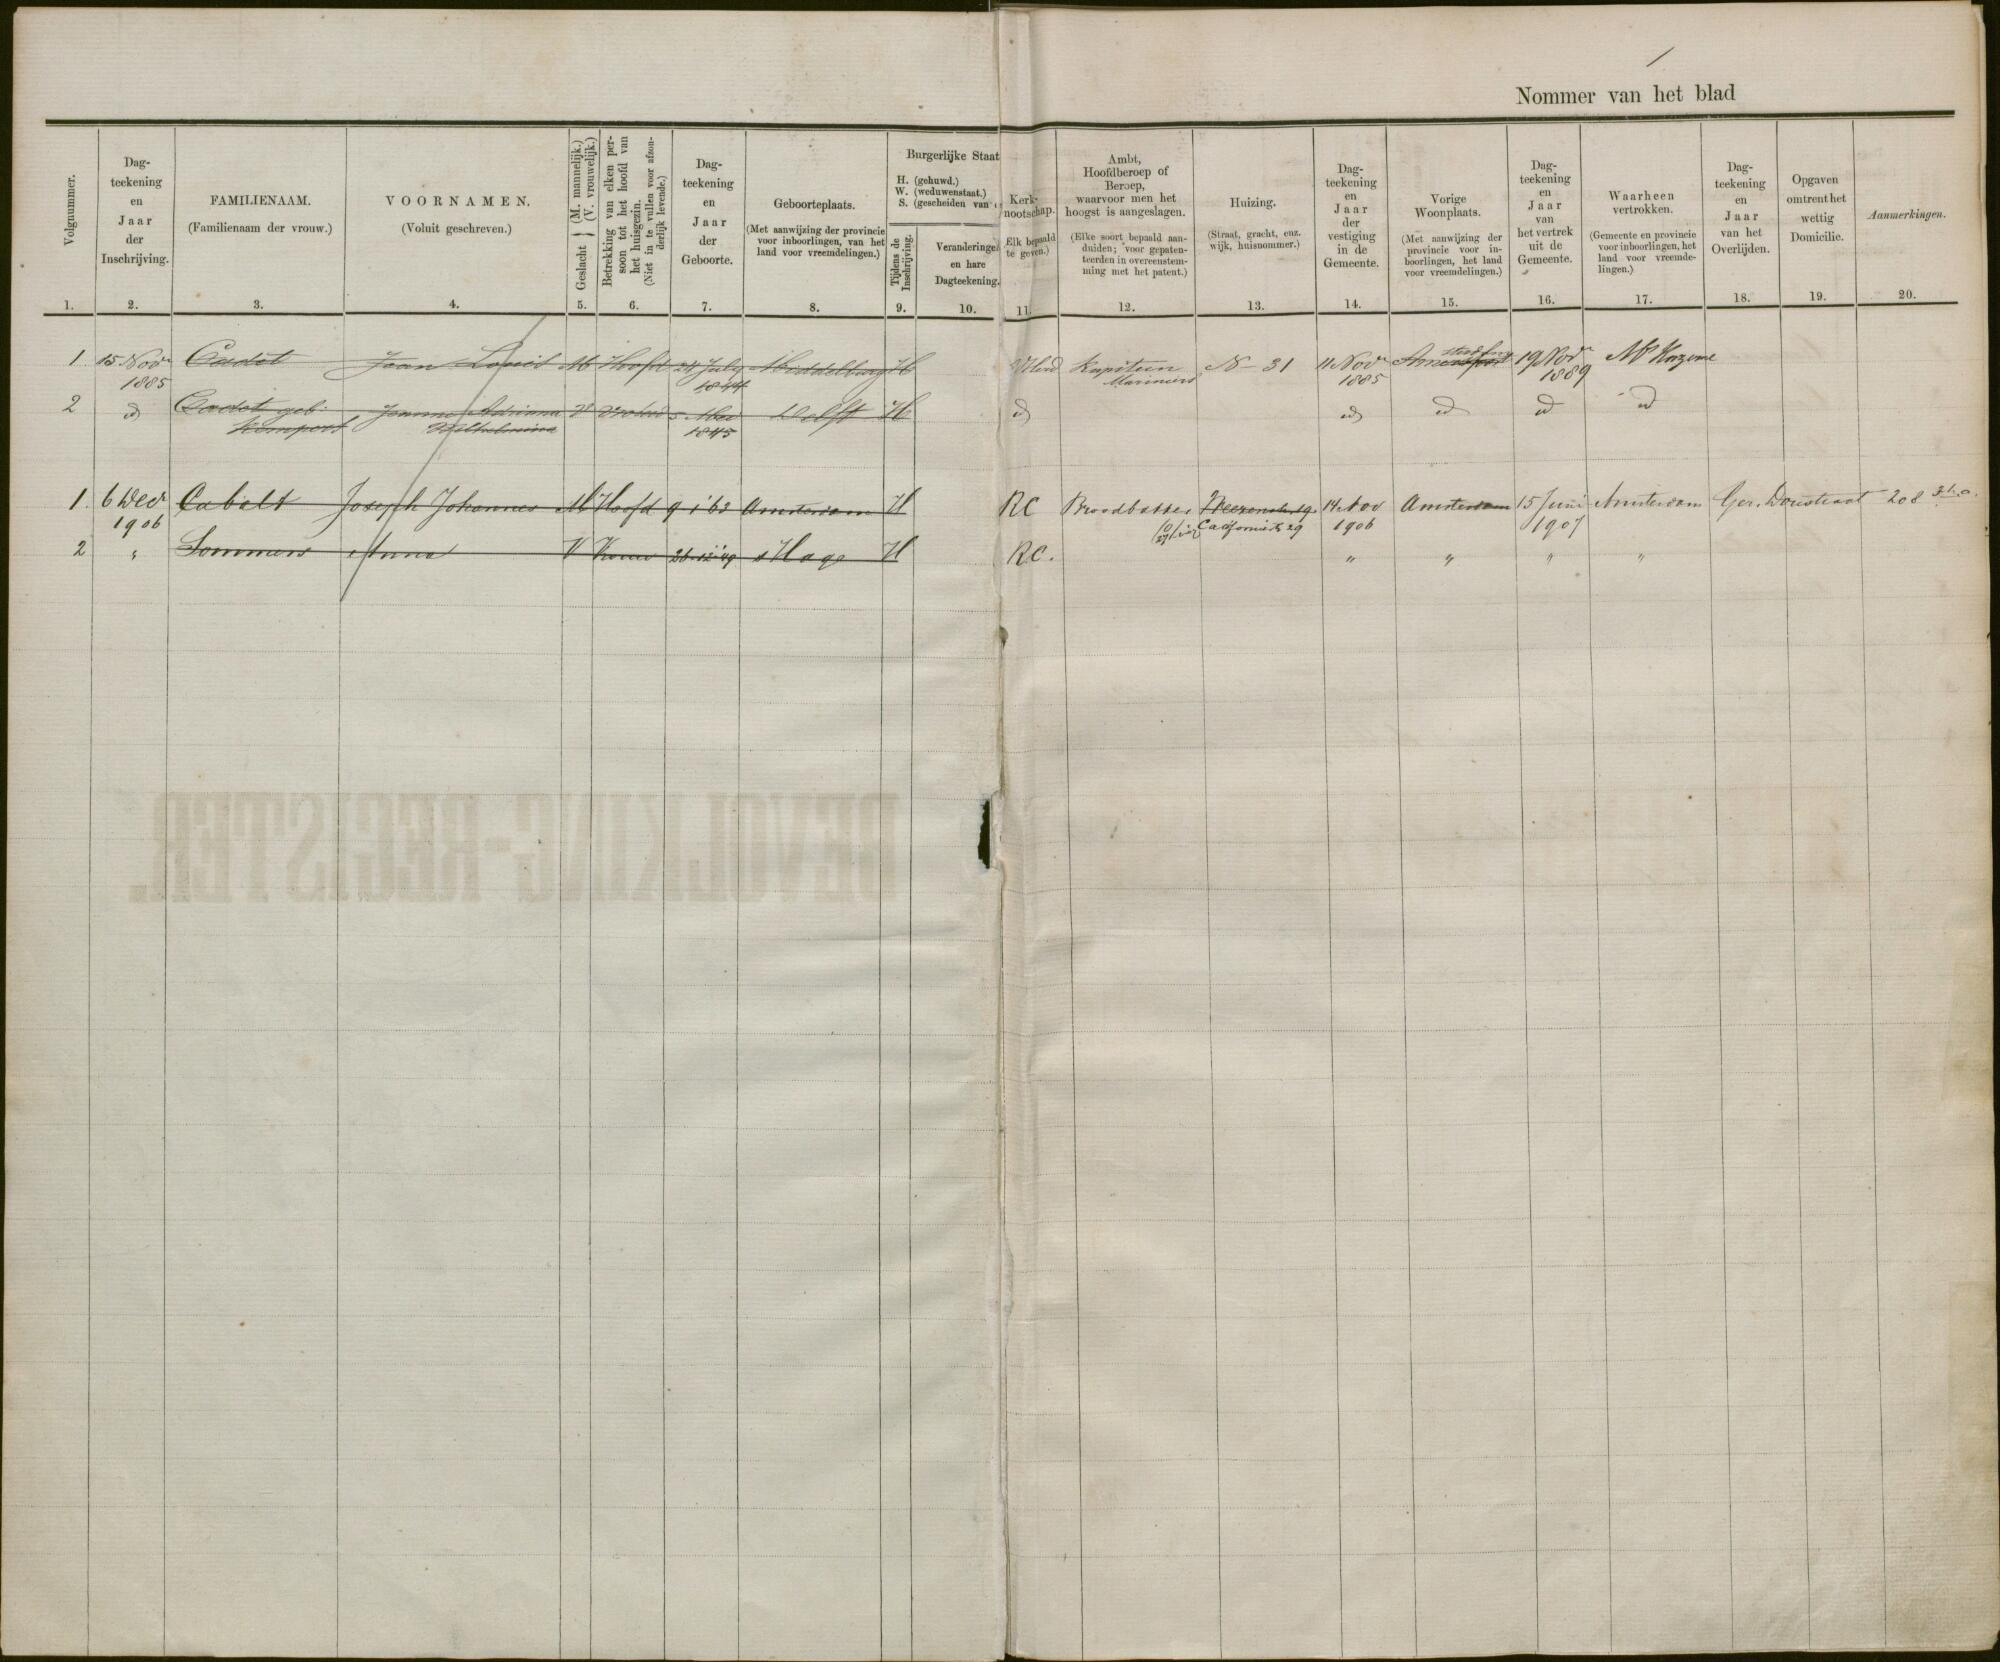 1
Nommer van het blad
Volgnummer.
Dag-
teekening
en
Jaar
der
Inschrijving.
FAMILIENAAM.
(Familienaam der vrouw.)
VOORNAMEN.
(Voluit geschreven.)
Geslacht { (M. mannelijk.) (V. vrouwelijk.)
Betrekking van elken per-
soon tot het hoofd van
het huisgezin.
(Niet in te vullen voor afzon-
derlijk levende.)
Dag-
teekening
en
Jaar
der
Geboorte.
Geboorteplaats.
(Met aanwijzing der provincie
voor inboorlingen, van het
land voor vreemdelingen.)
Burgerlijke Staat
H. (gehuwd.)
W. (weduwenstaat.)
S. (gescheiden van
Tijdens de
Inschrijving.
Veranderinge
en hare
Dagteekening.
Kerk-
nootschap.
(Elk bepaald
te geven.)
Ambt,
Hoofdberoep of
Beroep,
waarvoor men het
hoogst is aangeslagen.
(Elke soort bepaald aan-
duiden; voor gepaten-
teerden in overeenstem-
ming met het patent.)
Huizing.
(Straat, gracht, enz.
wijk, huisnommer.)
Dag-
teekening
en
Jaar
der
vestiging
in de
Gemeente.
Vorige
Woonplaats.
(Met aanwijzing der
provincie voor in-
boorlingen, het land
voor vreemdelingen.)
Dag-
teekening
en
Jaar
van
het vertrek
uit de
Gemeente.
Waarheen
vertrokken.
(Gemeente en provincie
voor inboorlingen, het
land voor vreemde-
lingen.)
Dag-
teekening
en
Jaar
van het
Overlijden.
Opgaven
omtrent het
wettig
Domicilie.
Aanmerkingen.
1. 2. 3. 4. 5. 6. 7. 8. 9. 10. 11. 12. 13. 14. 15. 16. 17. 18. 19. 20.
1 15 Novr Cadet Jean Louis M Hoofd 24 July Middelburg H Kapitein N 31 11 Novr 19 Novr
1885 1844 Mariniers 1885 1889
2 id Cadet geb: Johanna Adriana V Delft H id id id id id
Wilhelmina 1845
1. 6 Dec Cabalt Joseph Johannes M Hoofd 9 1 '63 Amsterdam H RC Broodbakker 19 14 Nov Amsterdam 15 Juni Amsterdam Ger. Doustraat 208
1906 29 1906 1907
2 " Sommers Anna V Vrouw 26 12 '49 s Hage H RC. " " " "
BEVOLKING-REGISTER.